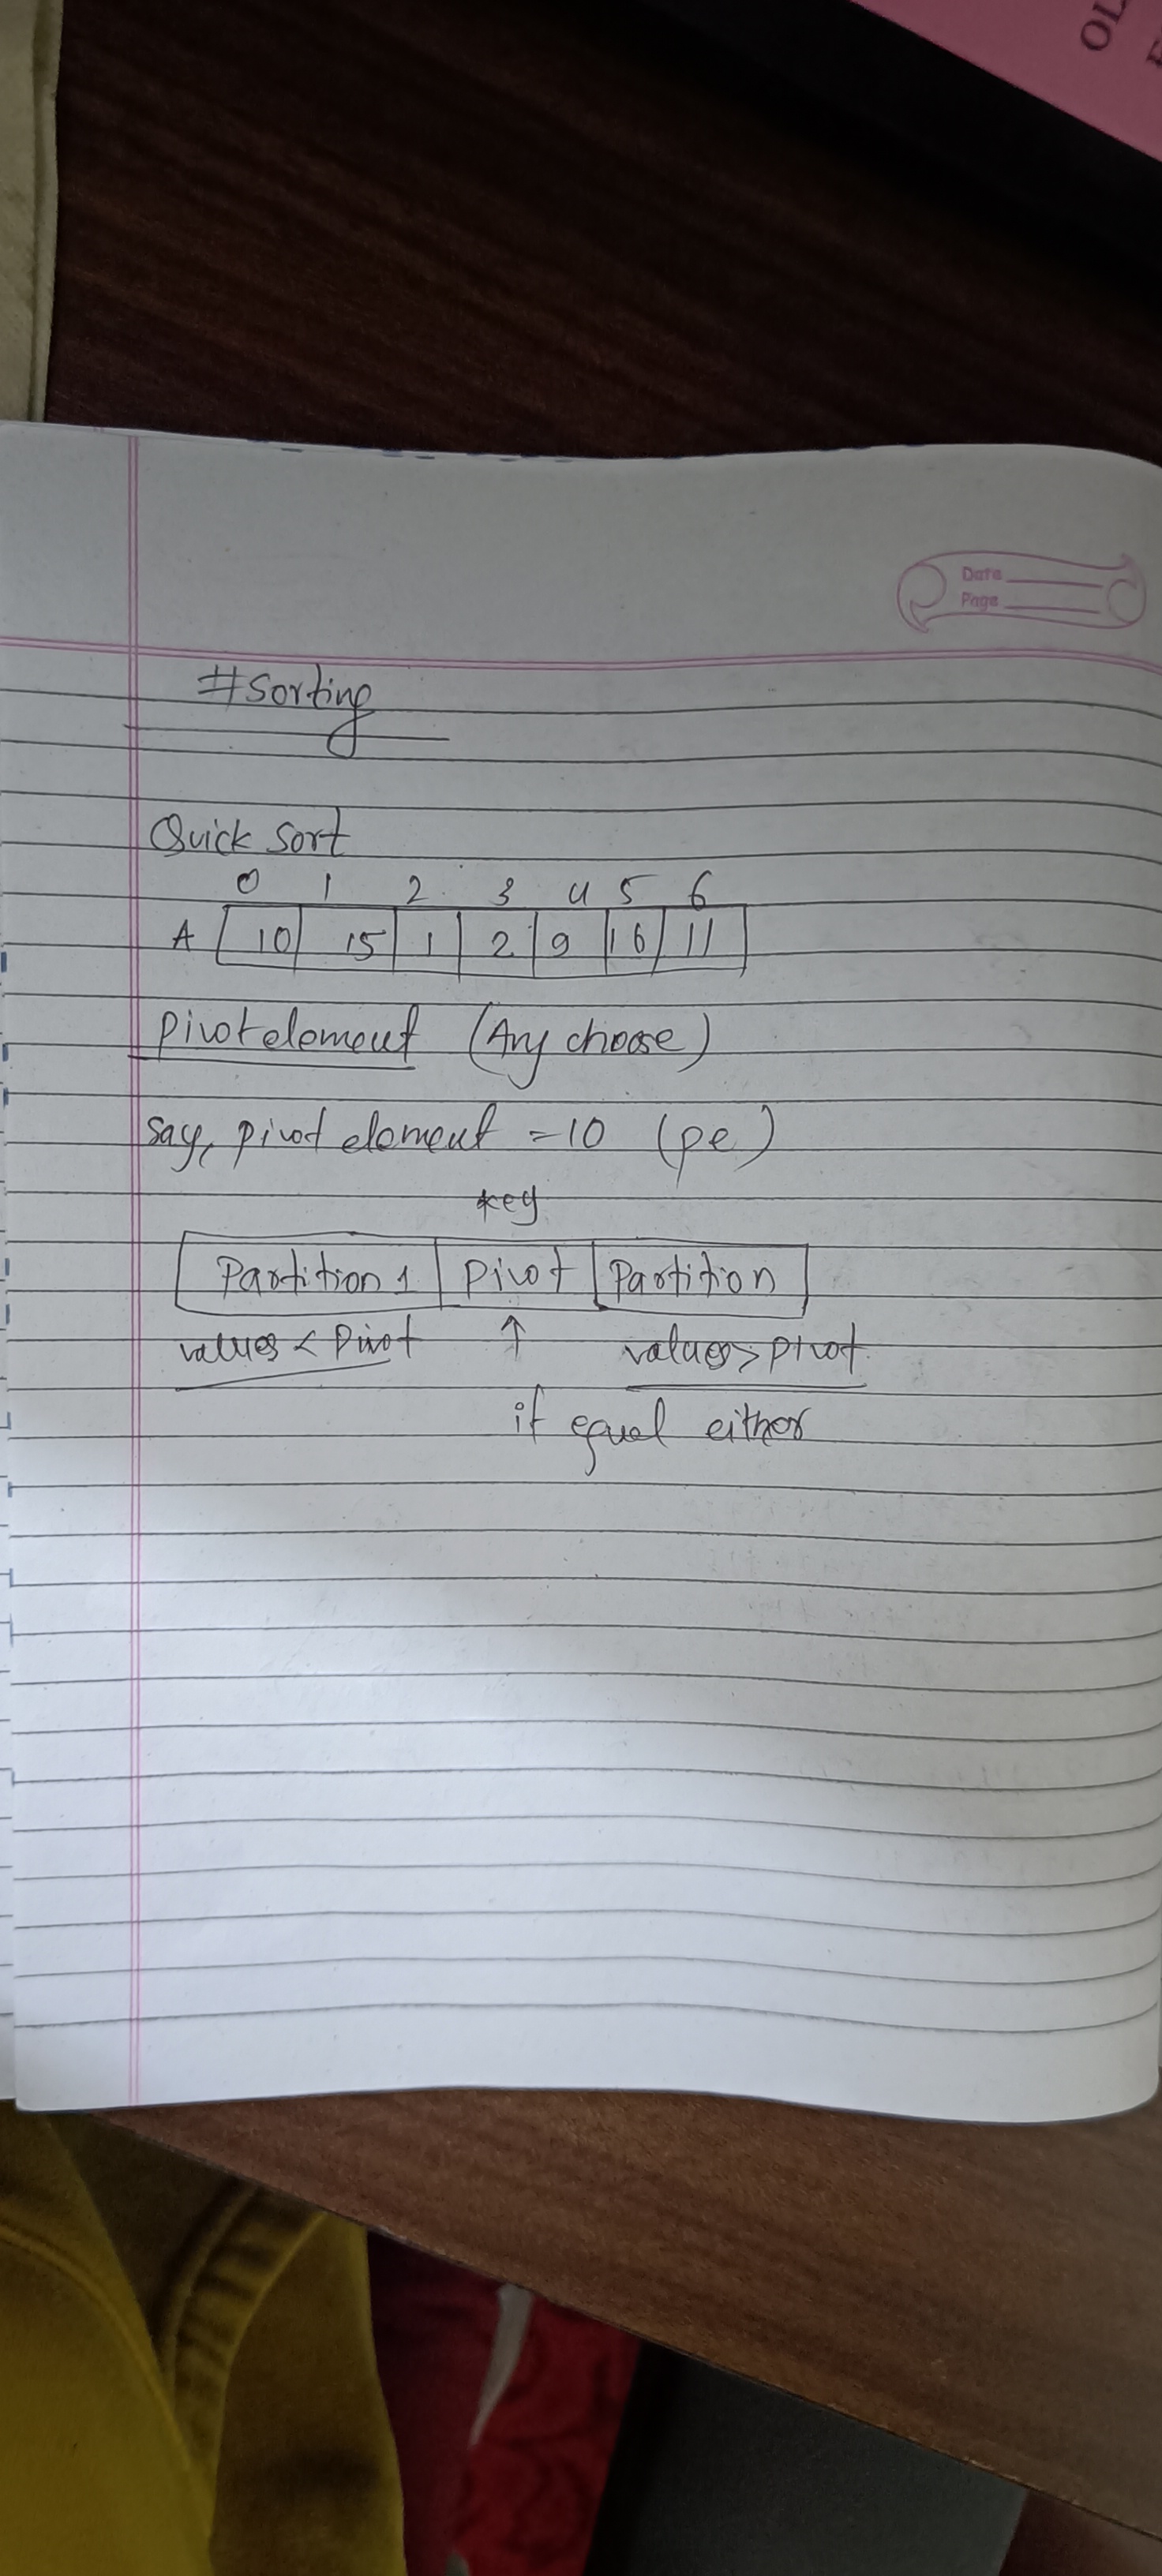 OL
Date
Page
#Sorting
Quick Sort
0 1 2 3 4 5 6
A 10 15 1 2 9 16 11
Pivot element (Any choose)
say, pivot element = 10 (pe)
key
Partition 1 Pivot Partition
values < Pivot ↑ values > pivot
if equal either